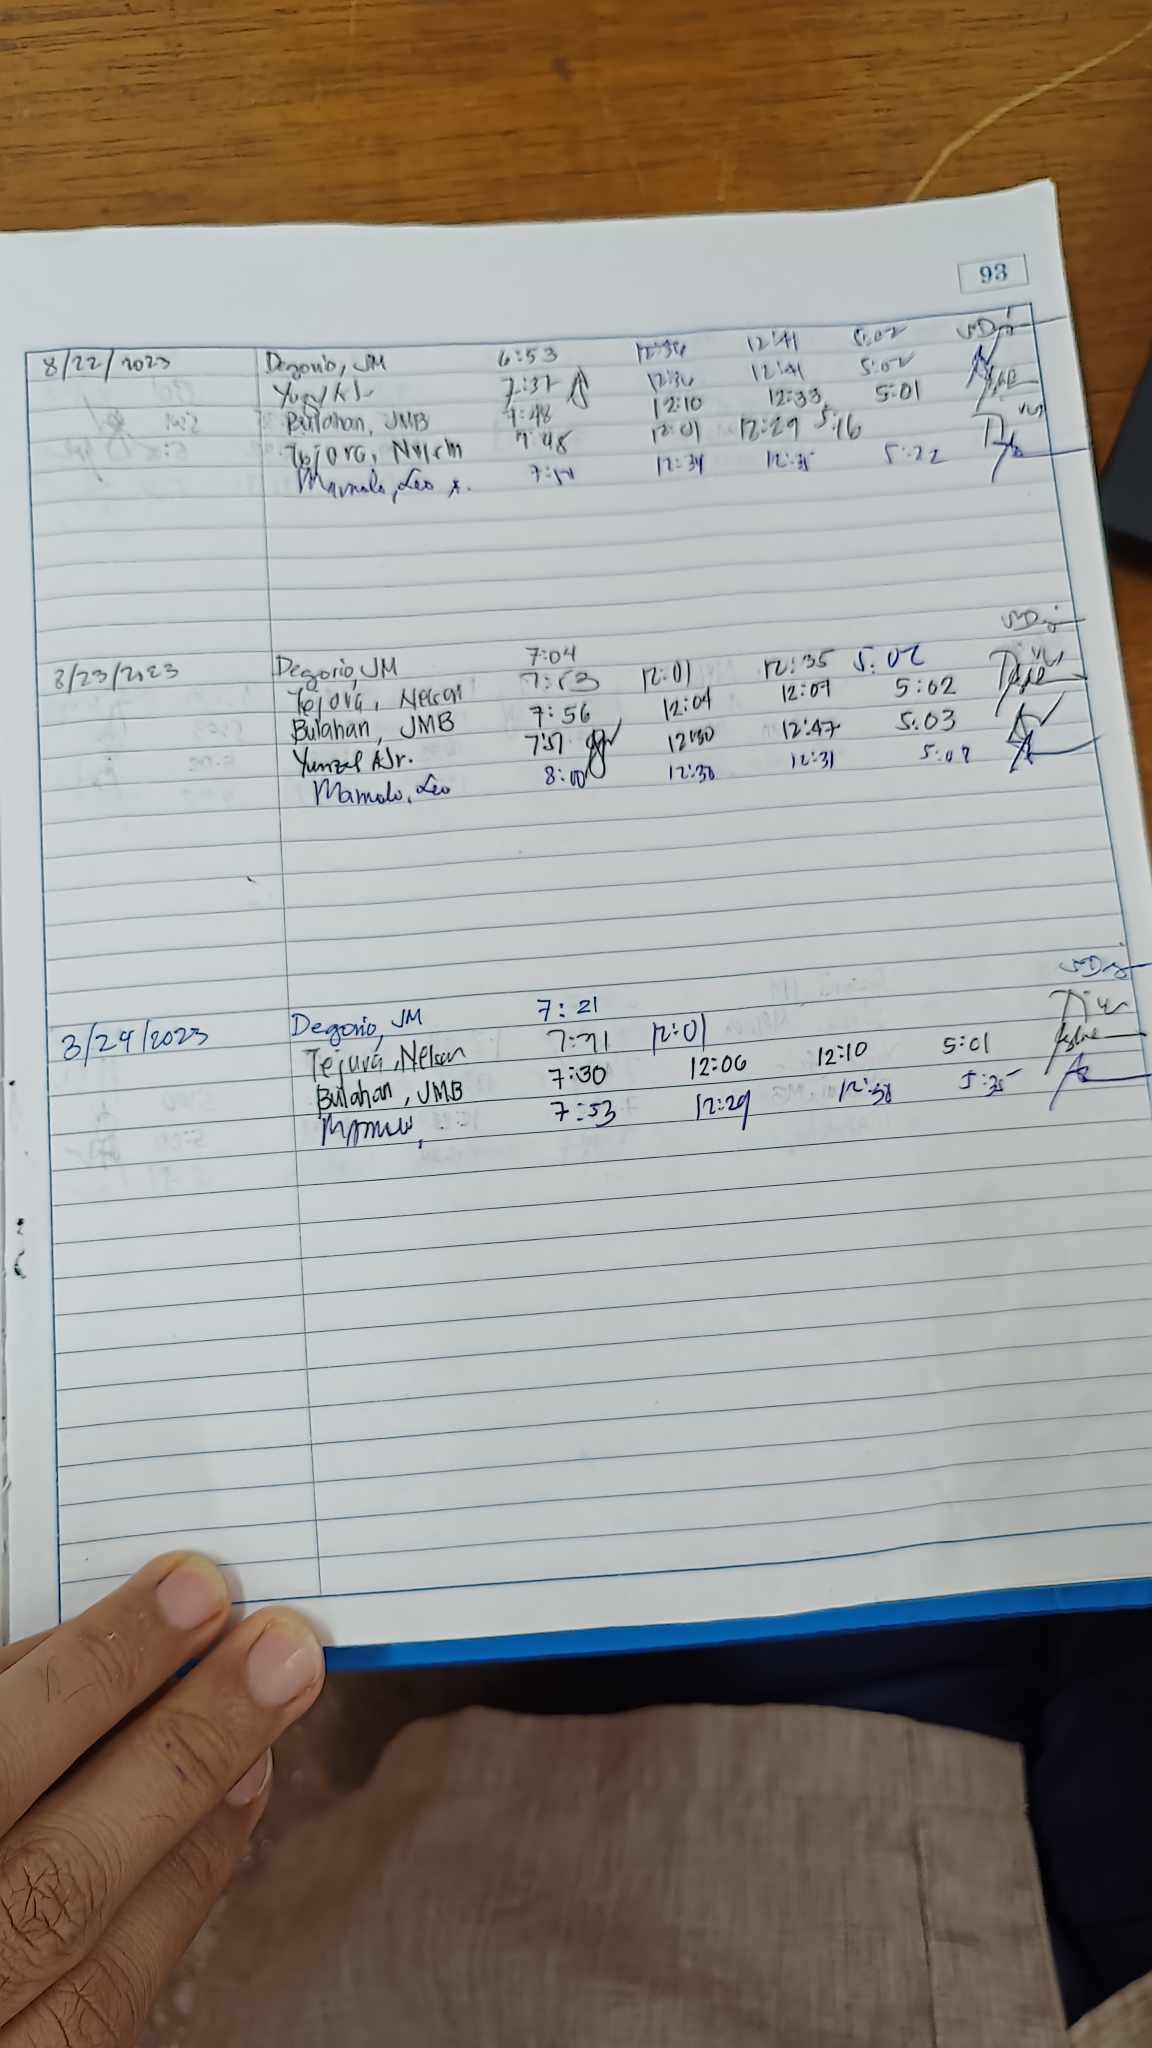 93
8/22/2023 Degorio, JM 6:53 12:36 12:41 5:02
7:37 12:36 12:41 5:02
Bulahan, JMB 7:48 12:10 12:33 5:01
Tejora, Nelson 7:48 12:01 12:29 5:16
Mamalo, Leo 12:34 5:22
8/23/2023 Degorio, JM 7:04
Tejora, Nelson 7:53 12:01 12:35 5:02
Bulahan, JMB 7:56 12:04 12:07 5:02
Yunzal A Jr. 7:57 12:30 12:47 5:03
Mamalo, Leo 8:00 12:30 12:31 5:07
8/24/2023 Degorio, JM 7:21
Tejora, Nelson 7:21 12:01
Bulahan, JMB 7:30 12:06 12:10 5:01
7:53 12:29 12:30 5:35